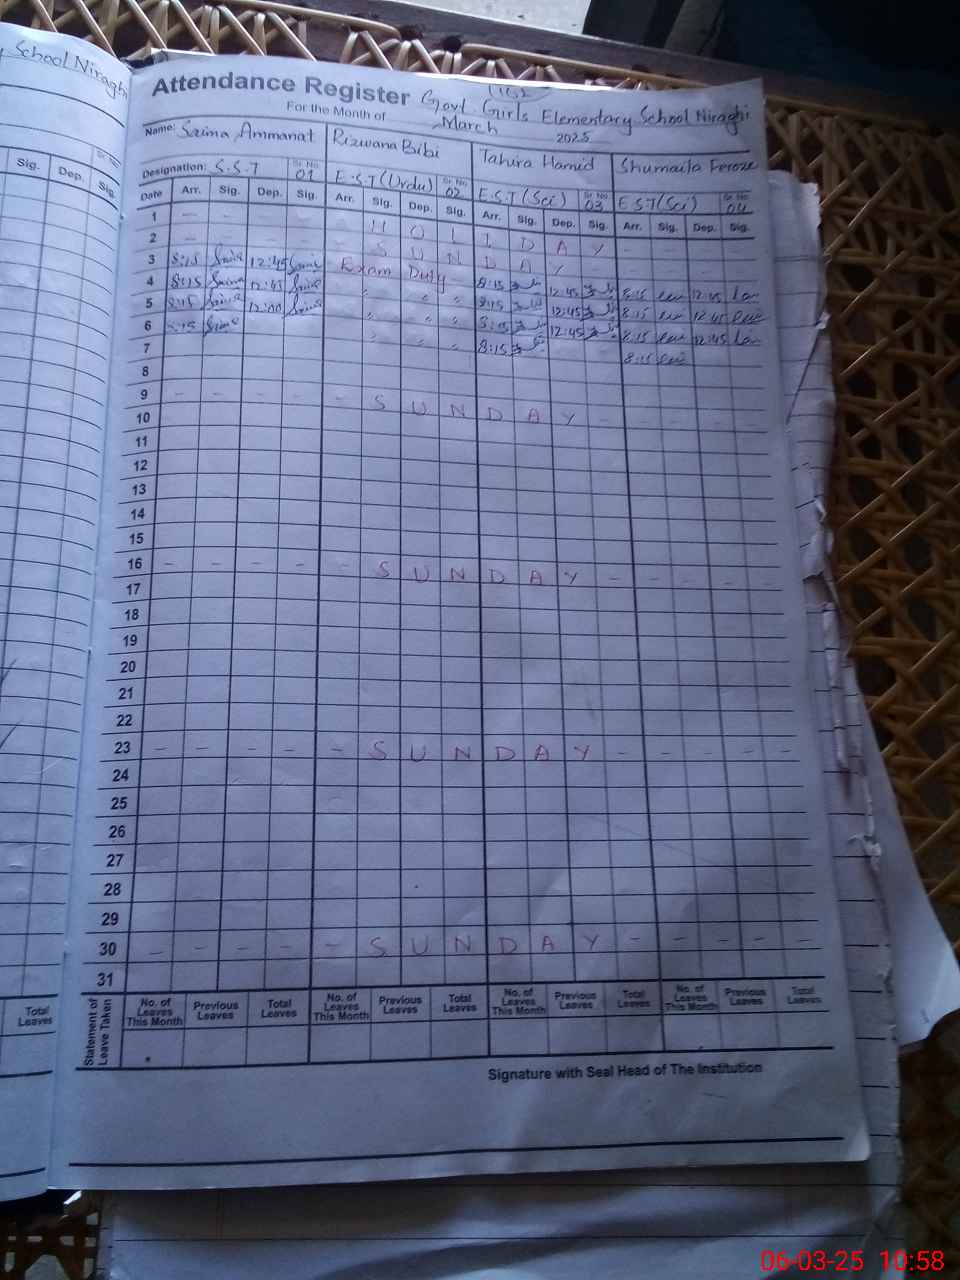 School Niraghi
Attendance Register Govt. Girls Elementary School Niraghi
For the Month of March 2025
Name: Saima Ammanat Rizwana Bibi Tahira Hamid Shumaila Feroze
Designation: S.S.T Sr. No. 01 E.S.T (Urdu) Sr. No. 02 E.S.T (Sci) Sr. No. 03 E.S.T (Sci) Sr. No. 04
Sig. Dep. Sig.
Date Arr. Sig. Dep. Sig. Arr. Sig. Dep. Sig. Arr. Sig. Dep. Sig. Arr. Sig. Dep. Sig.
1 - - - - - H O L I D A Y - - - -
2 - - - - - S U N D A Y - - - - -
3 8:15 Saima 12:45 Saima Exam Duty 8:15 12:45 8:15 12:45
4 8:15 Saima 12:45 Saima " " " 8:15 12:45 8:15 12:45
5 8:15 Saima 12:00 Saima " " " 8:15 12:45 8:15 12:45
6 8:15 Saima " " " 8:15 8:15
7
8
9 - - - - - S U N D A Y - - - - -
10
11
12
13
14
15
16 - - - - - S U N D A Y - - - - -
17
18
19
20
21
22
23 - - - - - S U N D A Y - - - - -
24
25
26
27
28
29
30 - - - - - S U N D A Y - - - - -
31
Total Leaves
Statement of Leave Taken No. of Leaves This Month Previous Leaves Total Leaves No. of Leaves This Month Previous Leaves Total Leaves No. of Leaves This Month Previous Leaves Total Leaves No. of Leaves This Month Previous Leaves Total Leaves
Signature with Seal Head of The Institution
06-03-25 10:58